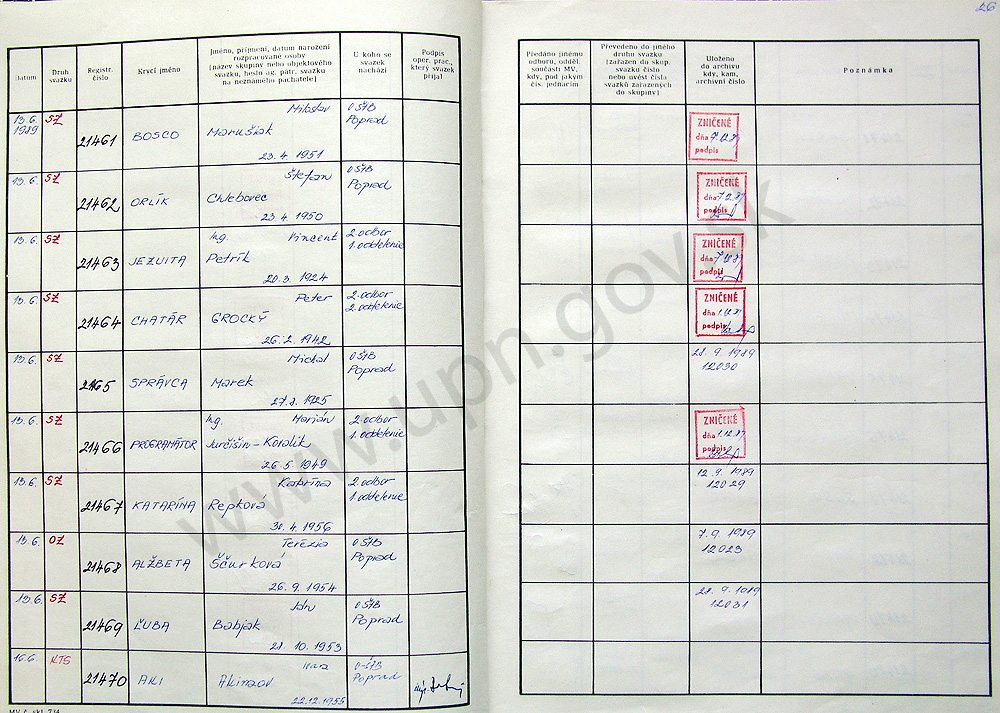 26
Datum
Druh svazku
Registr. číslo
Krycí jméno
Jméno, příjmení, datum narození
rozpracované osoby
[název skupiny nebo objektového
svazku, heslo ag. pátr. svazku
na neznámého pachatele]
U koho se
svazek
nachází
Podpis
oper. prac.,
který svazek
přijal
Předáno jinému
odboru, odděl.
součásti MV,
kdy, pod jakým
čís. jednacím
Převedeno do jiného
druhu svazku
[zařazen do skup.
svazku číslo
nebo uvést čísla
svazků zařazených
do skupiny]
Uloženo
do archivu
kdy, kam,
archivní číslo
Poznámka
13.6. 1989 SZ 21461 BOSCO Miloslav Marušiak 23. 4. 1951 OŠtB Poprad
ZNIČENÉ dňa podpis
13.6. SZ 21462 ORLÍK Štefan Chlebovec 23. 4. 1950 OŠtB Poprad
ZNIČENÉ dňa podpis
13.6. SZ 21463 JEZUITA Ing. Vincent Petrík 20. 3. 1924 2. odbor 1. oddelenie
ZNIČENÉ dňa podpis
13.6. SZ 21464 CHATÁR Peter GROCKÝ 26. 2. 1942 2. odbor 2. oddelenie
ZNIČENÉ dňa podpis
13.6. SZ 2165 SPRÁVCA Michal Marek 27. 8. 1925 OŠtB Poprad
28. 9. 1989 12030
13.6. SZ 21466 PROGRAMÁTOR Ing. Marián Jurčišin - Koralik 26. 5. 1949 2. odbor 1. oddelenie
ZNIČENÉ dňa podpis
13.6. SZ 21467 KATARÍNA Katarína Repková 4. 1956 2. odbor 1. oddelenie
12. 9. 1989 12029
13.6. OZ 21468 ALŽBETA Terézia Ščurková 26. 9. 1954 OŠtB Poprad
7. 9. 1989 12023
13.6. SZ 21469 ĽUBA Ján Babjak 28. 10. 1953 OŠtB Poprad
28. 9. 1989 12031
16.6. KTS 21470 AKI Akimov 22. 12. 1955 OŠtB Poprad
www.upn.gov.sk